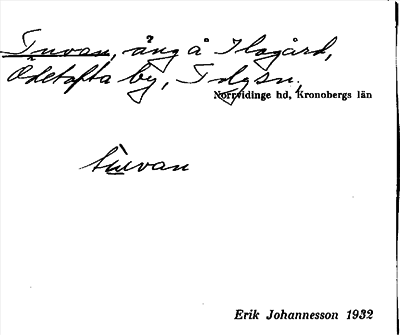 Tuvan, äng å Ilagård,
Ödetofta by, Tolgsn,
Norrvidinge hd, Kronobergs län
tuvan
Erik Johannesson 1932